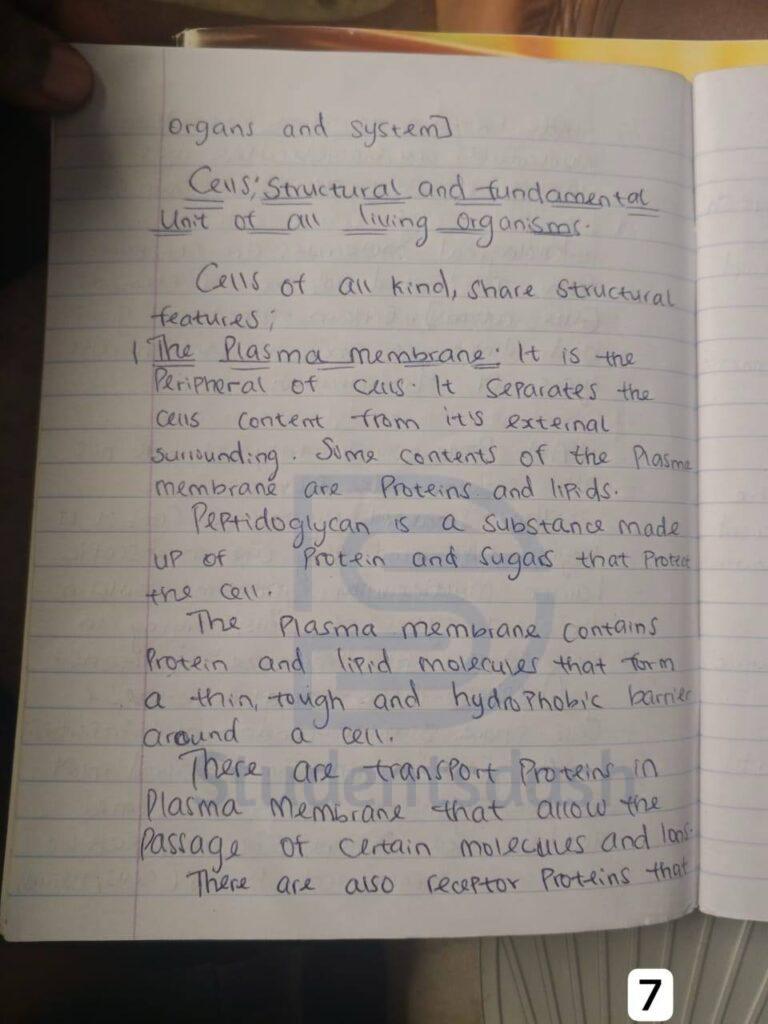 Organs and system]
Cells; Structural and fundamental
Unit of all living organisms.
Cells of all kind, share structural
features;
1 The Plasma membrane: It is the
Peripheral of cells. It separates the
cells content from it's external
surrounding. Some contents of the Plasma
membrane are Proteins and lipids.
Peptidoglycan is a substance made
up of Protein and Sugars that Protect
the cell.
The Plasma membrane contains
Protein and lipid molecules that form
a thin, tough and hydrophobic barrier
around a cell.
There are transport Proteins in
Plasma Membrane that allow the
Passage of certain molecules and Ions.
There are also receptor Proteins that
Studentsdash
7